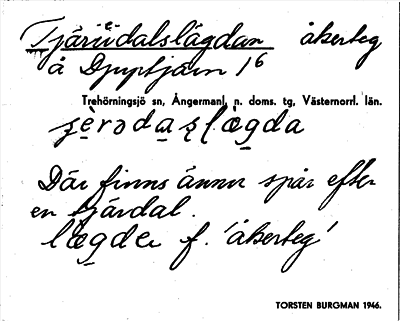 Tjäredalslägdan åkerteg
å Djuptjärn 1⁶
Trehörningsjö sn, Ångermanl. n. doms. tg, Västernorrl. län.
Där finns ännu spår efter
en tjärdal.
f. 'åkerteg'
TORSTEN BURGMAN 1946.